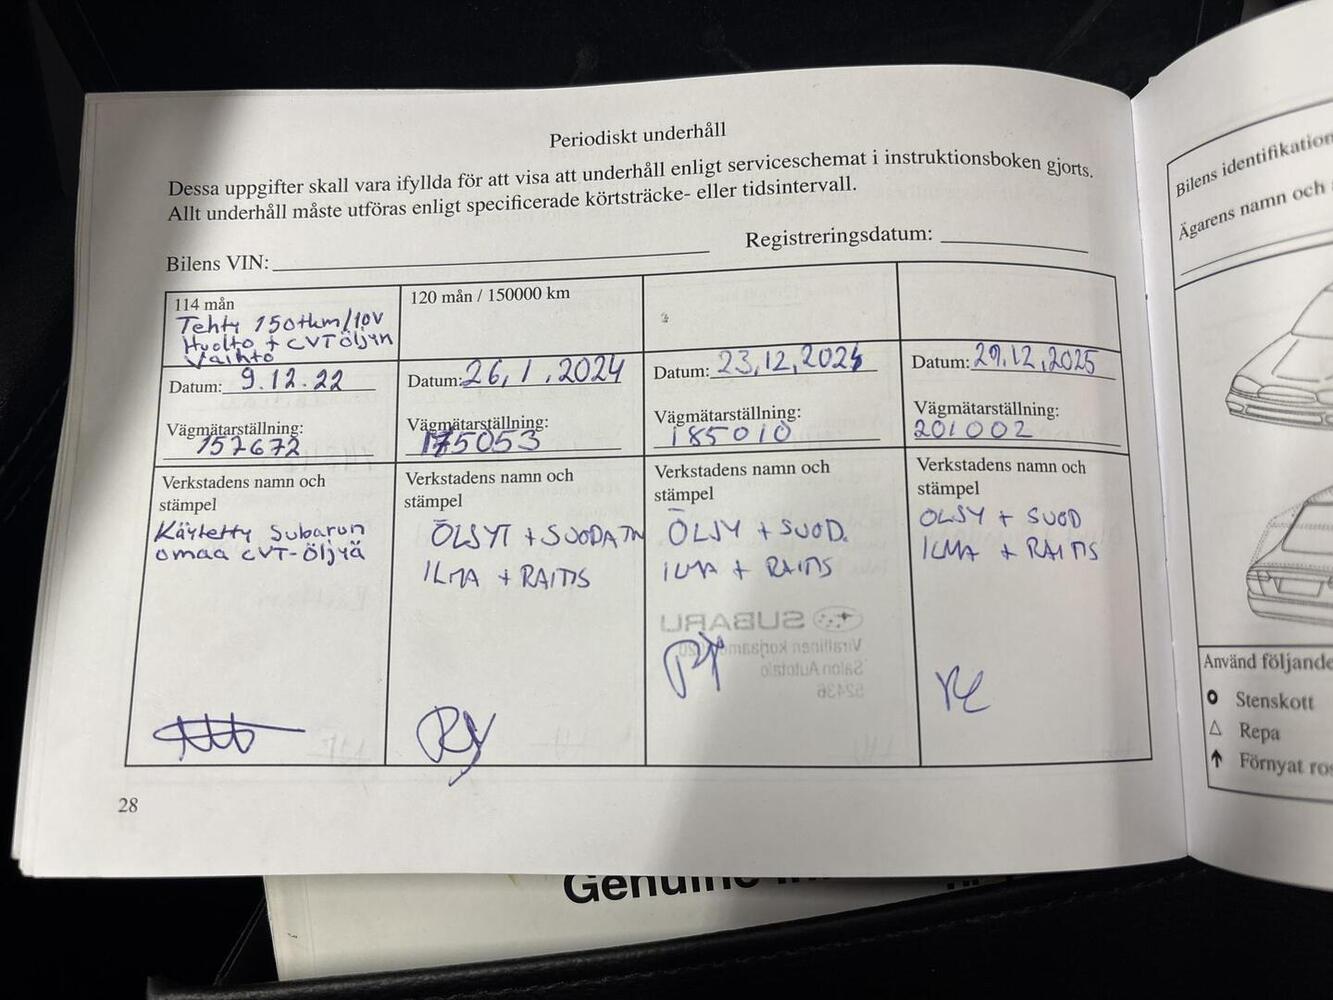 Periodiskt underhåll
Dessa uppgifter skall vara ifyllda för att visa att underhåll enligt serviceschemat i instruktionsboken gjorts.
Allt underhåll måste utföras enligt specificerade körtsträcke- eller tidsintervall.
Bilens VIN:
Registreringsdatum:
114 mån
Tehty 150tkm/10V
Huolto + CVT öljyn
Vaihto
Datum: 9.12.22
Vägmätarställning:
157672
Verkstadens namn och
stämpel
Käytetty Subarun
omaa CVT-öljyä
120 mån / 150000 km
Datum: 26,1,2024
Vägmätarställning:
175053
Verkstadens namn och
stämpel
ÖLJYT + SUODATIN
ILMA + RAITIS
Datum: 23,12,2024
Vägmätarställning:
185010
Verkstadens namn och
stämpel
ÖLJY + SUOD.
ILMA + RAITIS
SUBARU
Datum: 29.12,2025
Vägmätarställning:
201002
Verkstadens namn och
stämpel
ÖLJY + SUOD
ILMA + RAITIS
28
Bilens identifikation
Ägarens namn och
Använd följande
Stenskott
Repa
Förnyat ros
Genuine